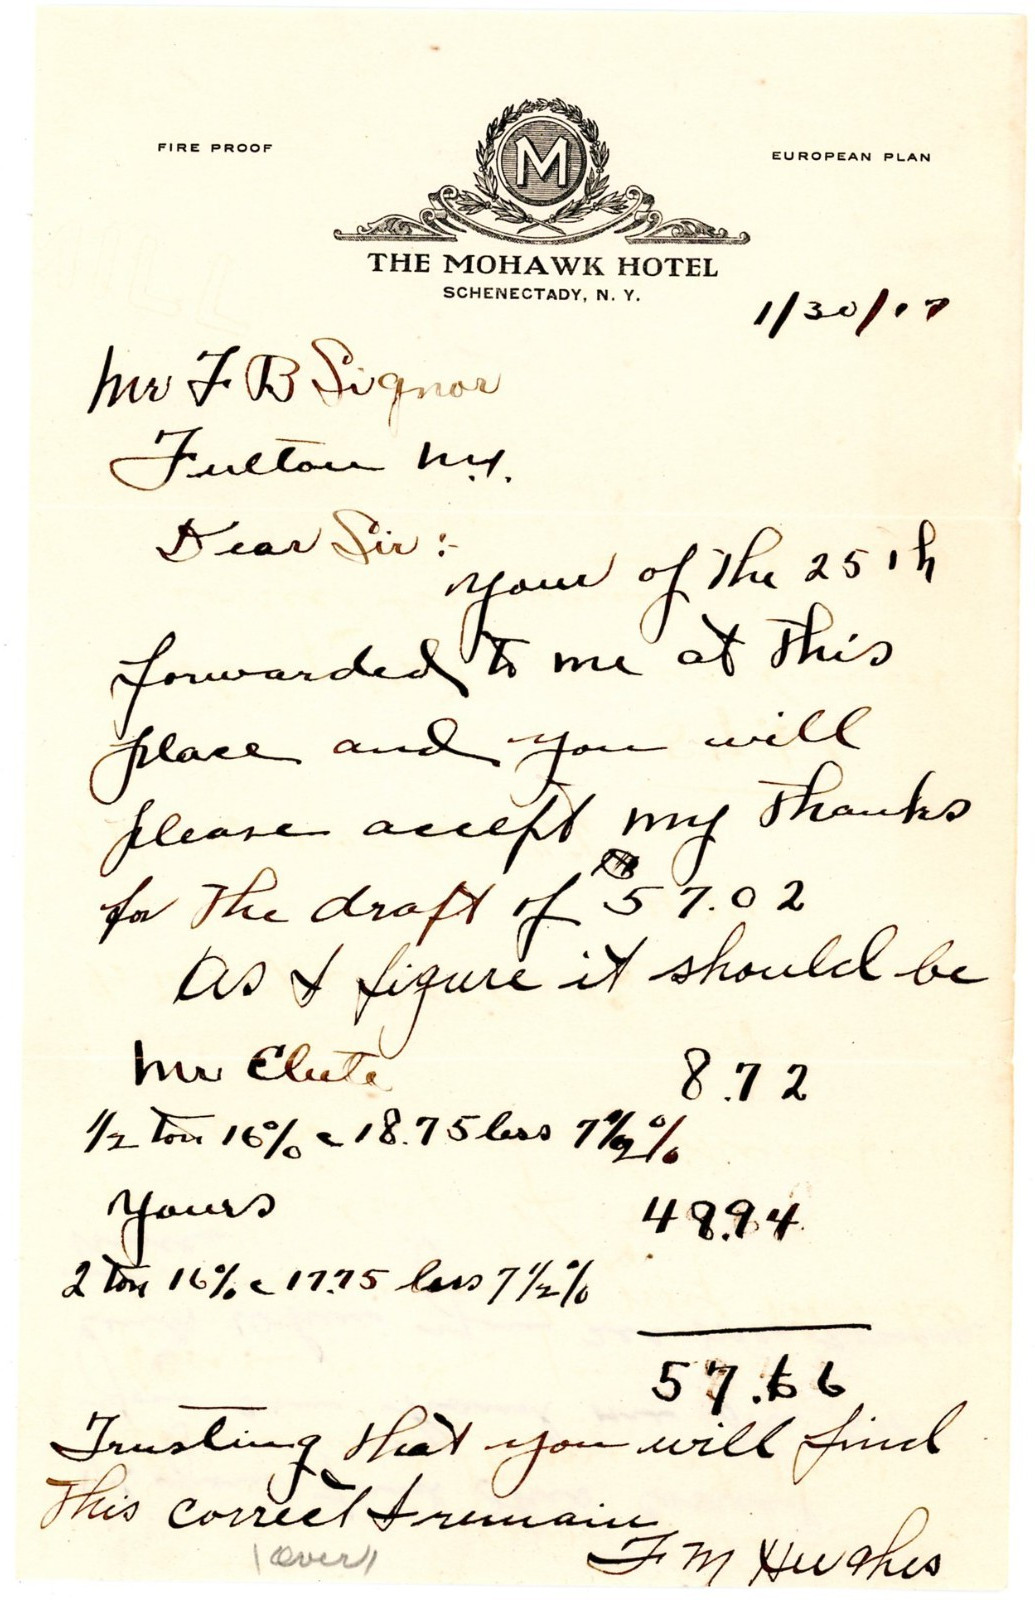 FIRE PROOF
EUROPEAN PLAN
M
THE MOHAWK HOTEL
SCHENECTADY, N. Y.
1/30/17
Mr F B Signor
Fulton N.Y.
Dear Sir :-
Your of the 25th
forwarded to me at this
place and you will
please accept my thanks
for the draft of 57.02
As I figure it should be
Mr Clute 8.72
1/2 ton 16% @ 18.75 less 7 1/2 %
Yours 48.94
2 ton 16% @ 17.75 less 7 1/2 %
57.66
Trusting that you will find
this correct I remain
F M Hughes
(over)